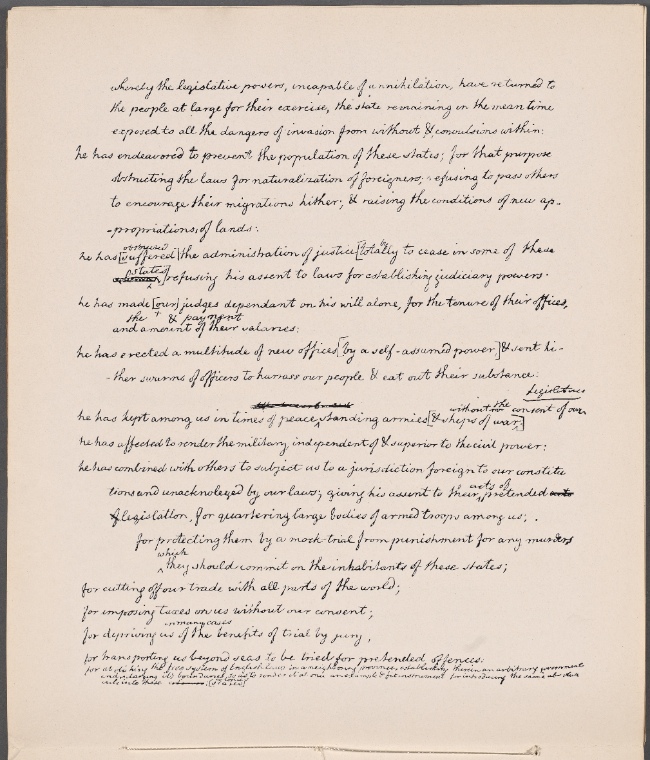 whereby the legislative powers, incapable of annihilation, have returned to
the people at large for their exercise, the state remaining in the mean time
exposed to all the dangers of invasion from without & convulsions within:
he has endeavored to prevent the population of these states; for that purpose
obstructing the laws for naturalization of foreigners; refusing to pass others
to encourage their migrations hither; & raising the conditions of new ap-
-propriations of lands:
obstructed by
he has [suffered] the administration of justice [totally to cease in some of these
states]
refusing his assent to laws for establishing judiciary powers.
he has made [our] judges dependant on his will alone, for the tenure of their offices,
the & payment
and amount of their salaries:
he has erected a multitude of new offices [by a self-assumed power] & sent hi-
-ther swarms of officers to harrass our people & eat out their substance:
legislatures
without the consent of our
he has kept among us in times of peace standing armies [& ships of war]
he has affected to render the military, independent of & superior to the civil power:
he has combined with others to subject us to a jurisdiction foreign to our constitu
acts of
tions and unacknoleged by our laws; giving his assent to their pretended acts
of legislation, for quartering large bodies of armed troops among us;
for protecting them by a mock-trial from punishment for any murders
which
they should commit on the inhabitants of these states;
for cutting off our trade with all parts of the world;
for imposing taxes on us without our consent;
in many cases
for depriving us of the benefits of trial by jury,
for transporting us beyond seas to be tried for pretended offences:
for abolishing the free system of English laws in a neighboring province, establishing therein an arbitrary government
and enlarging it's boundaries so as to render it at once an example & fit instrument for introducing the same absolute
rule into these [states]